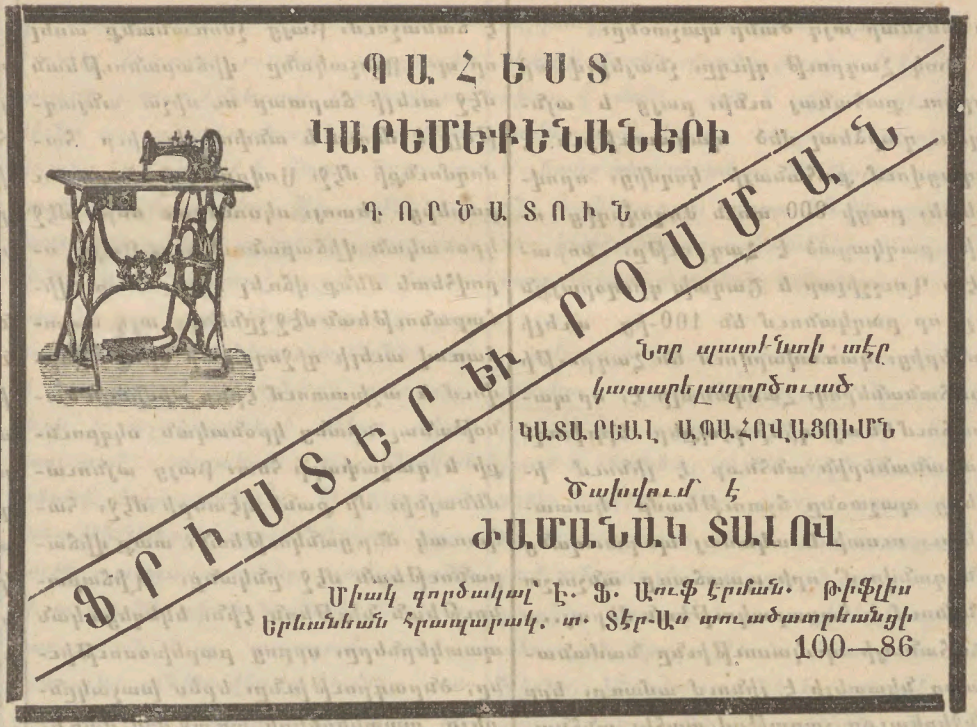 ՊԱՀԵՍՏ
ԿԱՐԵՄԵՔԵՆԱՆԵՐԻ
ԳՈՐԾԱՏՈՒՆ
ՖՐԻՍՏԵՐ ԵՒ ՐՕՍՄԱՆ
Նոր պատէնտի տէր
կատարելագործուած
ԿԱՏԱՐԵԱԼ ԱՊԱՀՈՎԱՑՈՒՄՆ
Ծախվում է
ԺԱՄԱՆԱԿ ՏԱԼՈՎ
Միակ գործակալ Է. Ֆ. Աուֆէրման. Թիֆլիս
Երևանեան հրապարակ. տ. Տէր-Աս տուածատրեանցի
100—86